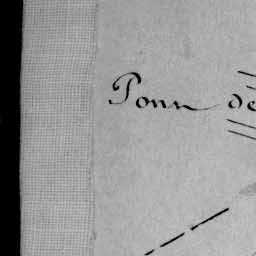 Pour de